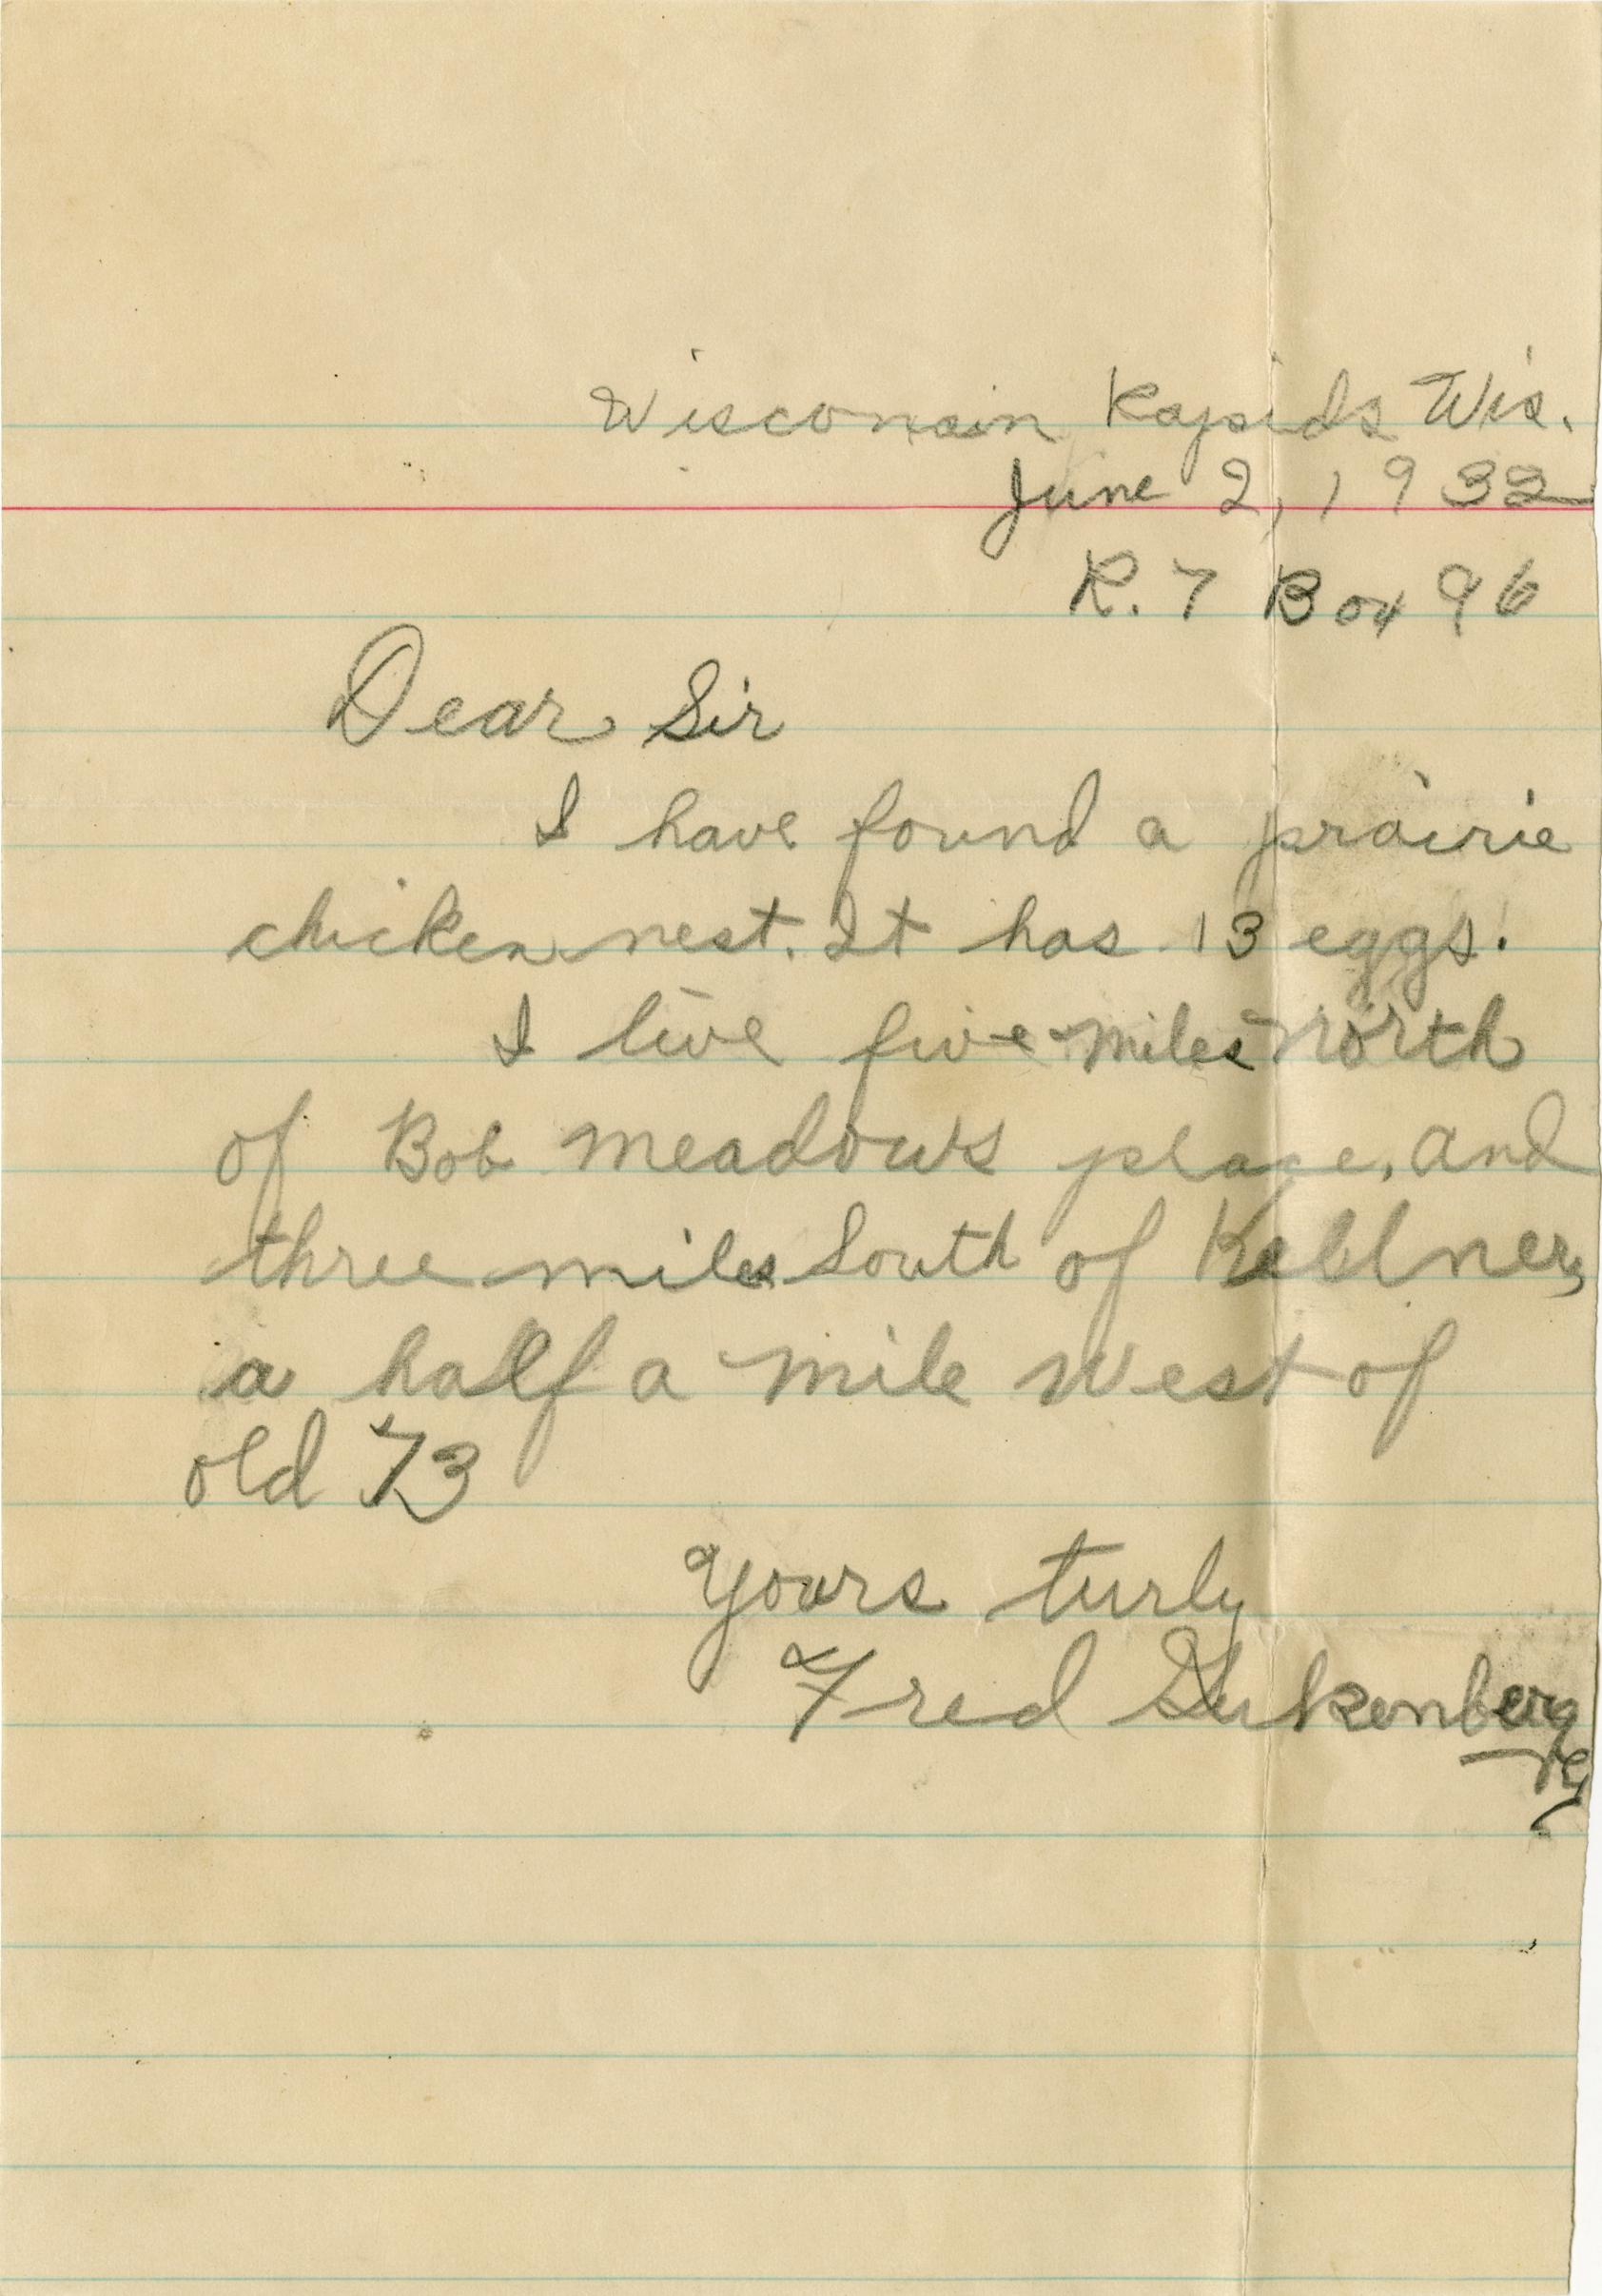 Wisconsin Rapids Wis.
June 2, 1932
R. 7 Box 96
Dear Sir
I have found a prairie
chicken nest. It has 13 eggs.
I live five miles north
of Bob meadows place, and
three miles South of Kellner,
a half a mile West of
old 73
Yours turly
Fred